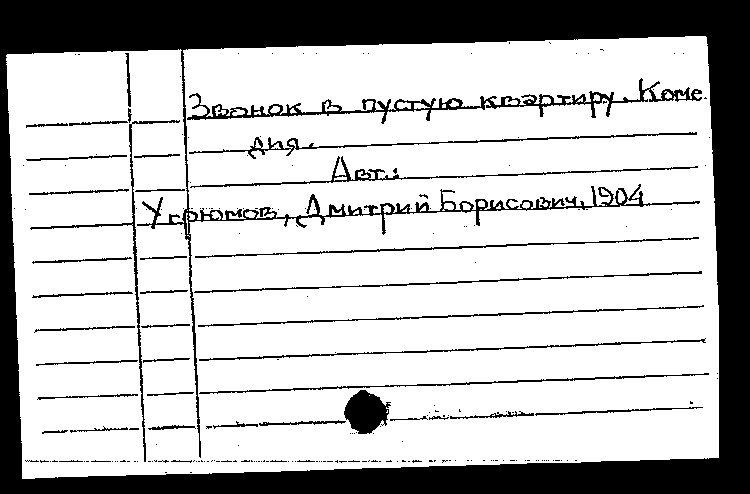 Звонок в пустую квартиру. Коме
дия.
Авт.:
Угрюмов, Дмитрий Борисович, 1904